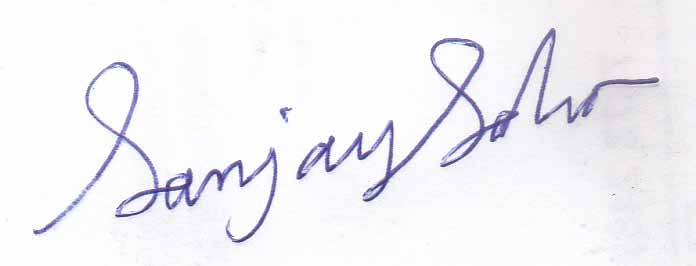 Sanjay Saha